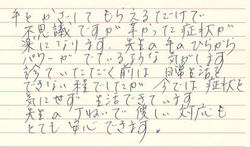 手をかざしてもらえるだけで
不思議ですが辛かった症状が
楽になります。先生の手のひらから
パワーがでているような気がします
診ていただく前は日常生活も
できない程でしたが今では症状を
気にせず生活できています
先生の丁ねいで優しい対応も
とても安心できます。